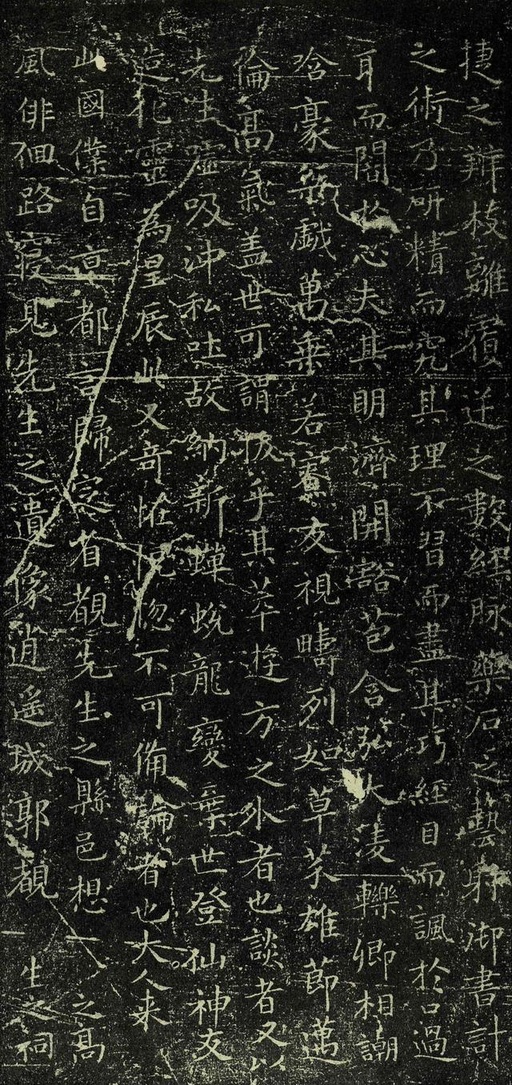 捷之辯枝離覆逆之數經脉藥石之藝射御書計
之術乃研精而究其理不習而盡其巧經目而諷於口過
耳而闇於心夫其明濟開豁苞含弘大淩轢卿相謿
哈豪桀戲萬乗若寮友視疇列如草芥雄節邁
倫高氣盖世可謂拔乎其萃遊方之外者也談者又以
先生噓吸沖和吐故納新蟬蛻龍變棄世登仙神友
造化靈為星辰此又奇怪恍惚不可備論者也大人来
此國僕自京都言歸定省覩先生之縣邑想之高
風俳佪路寢見先生之遺像逍遥城郭覩生之祠